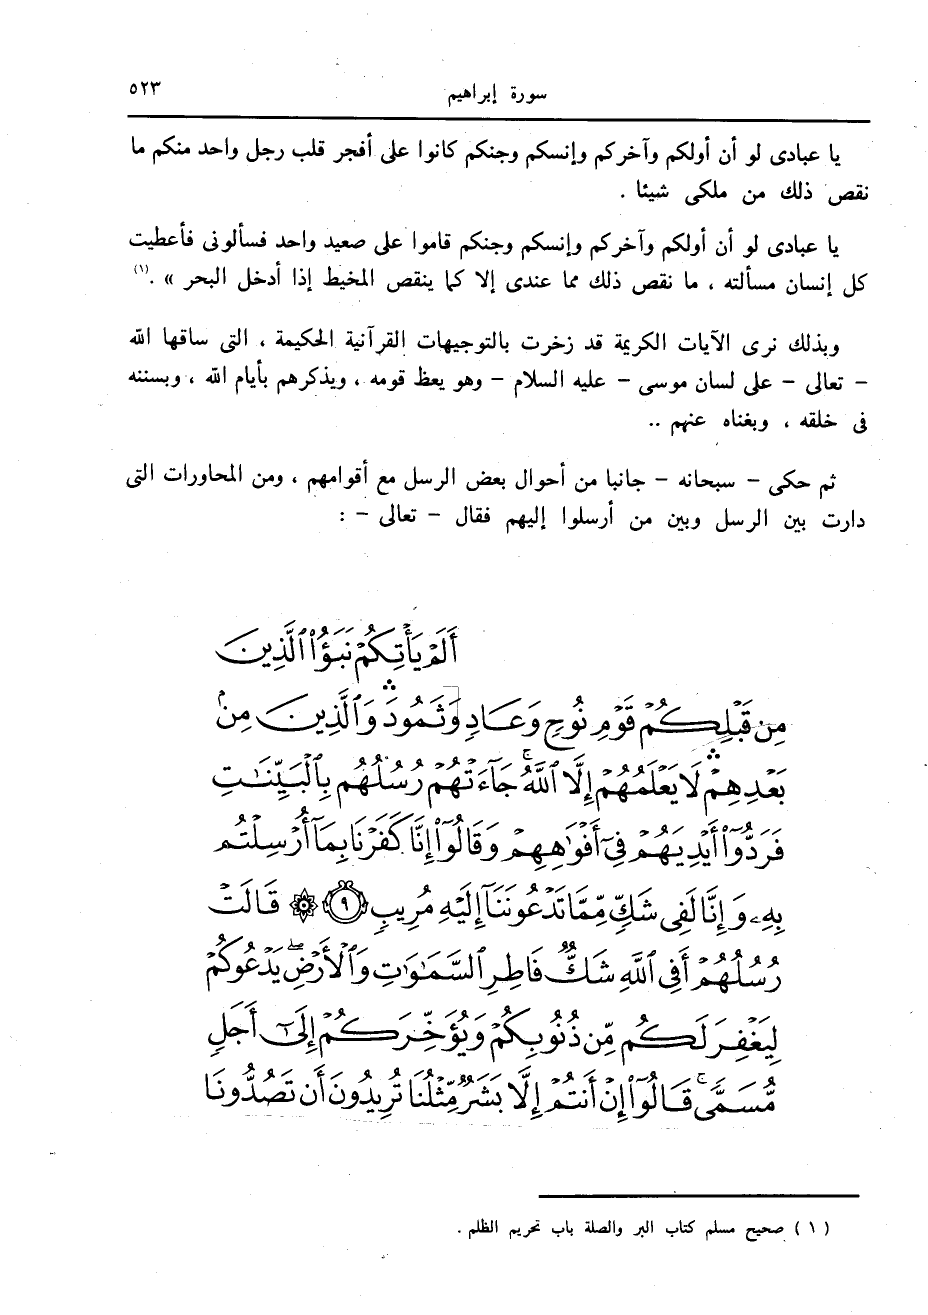 سورة إبراهيم ٥٢٣
يا عبادى لو أن أولكم وآخركم وإنسكم وجنكم كانوا على أفجر قلب رجل واحد منكم ما
نقص ذلك من ملكى شيئا .
يا عبادى لو أن أولكم وآخركم وإنسكم وجنكم قاموا على صعيد واحد فسألونى فأعطيت
كل إنسان مسألته ، ما نقص ذلك مما عندى إلا كما ينقص المخيط إذا أدخل البحر » .(١)
وبذلك نرى الآيات الكريمة قد زخرت بالتوجيهات القرآنية الحكيمة ، التى ساقها الله
– تعالى – على لسان موسى – عليه السلام – وهو يعظ قومه ، ويذكرهم بأيام الله ، وبسننه
فى خلقه ، وبغناه عنهم ..
ثم حكى – سبحانه – جانبا من أحوال بعض الرسل مع أقوامهم ، ومن المحاورات التى
دارت بين الرسل وبين من أرسلوا إليهم فقال – تعالى – :
أَلَمْ يَأْتِكُمْ نَبَؤُا۟ ٱلَّذِينَ
مِن قَبْلِكُمْ قَوْمِ نُوحٍ وَعَادٍ وَثَمُودَ ۛ وَٱلَّذِينَ مِنۢ
بَعْدِهِمْ ۛ لَا يَعْلَمُهُمْ إِلَّا ٱللَّهُ ۚ جَآءَتْهُمْ رُسُلُهُم بِٱلْبَيِّنَـٰتِ
فَرَدُّوٓا۟ أَيْدِيَهُمْ فِىٓ أَفْوَٰهِهِمْ وَقَالُوٓا۟ إِنَّا كَفَرْنَا بِمَآ أُرْسِلْتُم
بِهِۦ وَإِنَّا لَفِى شَكٍّ مِّمَّا تَدْعُونَنَآ إِلَيْهِ مُرِيبٍ ٩ ۞ قَالَتْ
رُسُلُهُمْ أَفِى ٱللَّهِ شَكٌّ فَاطِرِ ٱلسَّمَـٰوَٰتِ وَٱلْأَرْضِ ۖ يَدْعُوكُمْ
لِيَغْفِرَ لَكُم مِّن ذُنُوبِكُمْ وَيُؤَخِّرَكُمْ إِلَىٰٓ أَجَلٍ
مُّسَمًّى ۚ قَالُوٓا۟ إِنْ أَنتُمْ إِلَّا بَشَرٌ مِّثْلُنَا تُرِيدُونَ أَن تَصُدُّونَا
( ١ ) صحيح مسلم كتاب البر والصلة باب تحريم الظلم .